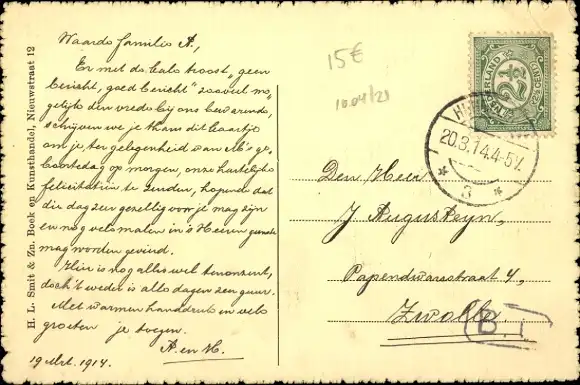 H. L. Smit & Zn. Boek en Kunsthandel, Nieuwstraat 12
Waarde familie A.,
En met de leals troost "geen
bericht, goed bericht" zooveel mo-
gelijk den vrede bij ons bewarende,
schrijven we je thans dit kaartje
om je, ter gelegenheid van A's ge-
boortedag op morgen, onze hartelijke
felicitatiën te zenden, hopende dat
die dag zeer gezellig voor je mag zijn
en nog vele malen in 's Heeren gunst
mag worden gevierd.
Hier is nog alles wel
doch 't weder is alle dagen zeer guur.
Met warmen handdruk en vele
groeten je toegen.
A. en H.
19 Mrt. 1914.
15€
1004/21
NEDERLAND
2½
CENT
20.3.14.4-5V.
3
Den Heer
J. Augusteyn,
Papendwarsstraat 4,
Zwolle
B. 1